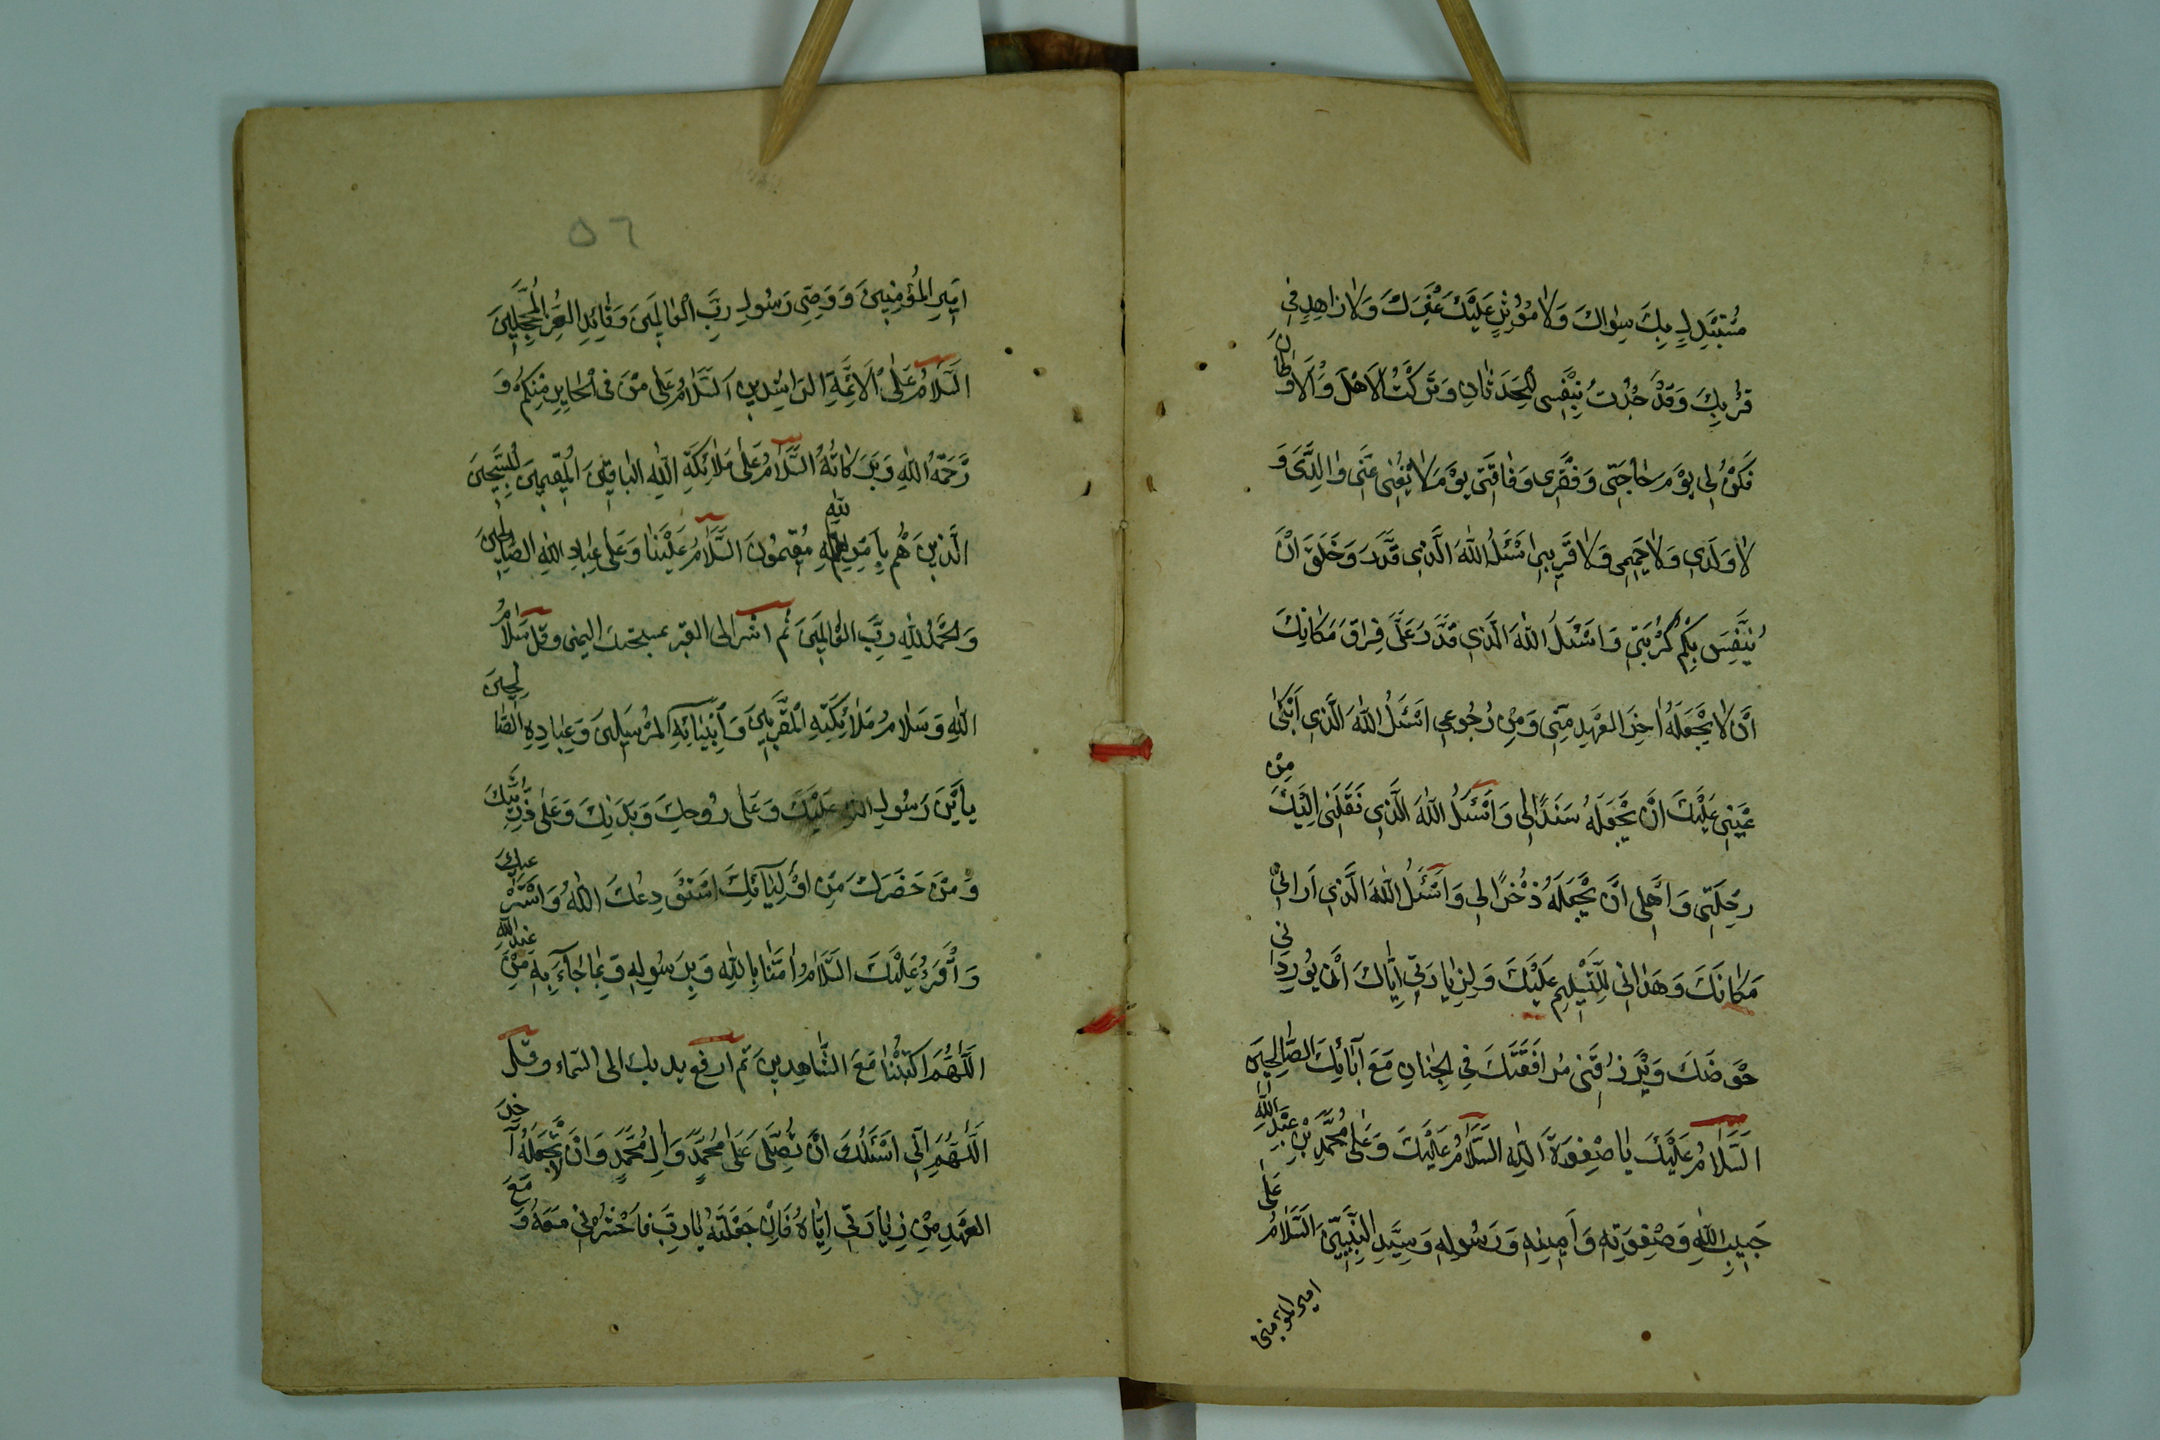 مُسْتَبْدِلٍ بِكَ سِوَاكَ وَلَا مُؤْثِرٍ عَلَيْكَ غَيْرَكَ وَلَا زَاهِدٍ فِي
قُرْبِكَ وَقَدْ جُدْتُ بِنَفْسِي لِلْحَدَثَانِ وَتَرَكْتُ الْأَهْلَ وَالْأَوْطَانَ
فَكُنْ لِي يَوْمَ حَاجَتِي وَفَقْرِي وَفَاقَتِي يَوْمَ لَا يُغْنِي عَنِّي وَالِدَيَّ وَ
لَا وَلَدِي وَلَا حَمِيمِي وَلَا قَرِيبِي اَسْئَلُ اللّٰهَ الَّذِي قَدَّرَ وَخَلَقَ اَنْ
يُنَفِّسَ بِكُمْ كُرْبَتِي وَاَسْئَلُ اللّٰهَ الَّذِي قَدَّرَ عَلَيَّ فِرَاقَ مَكَانِكَ
اَنْ لَا يَجْعَلَهُ اٰخِرَ الْعَهْدِ مِنِّي وَمِنْ رُجُوعِي اَسْئَلُ اللّٰهَ الَّذِي اَبْكَى
عَيْنِي عَلَيْكَ اَنْ يَجْعَلَهُ سَنَدًا لِي وَاَسْئَلُ اللّٰهَ الَّذِي نَقَلَنِي اِلَيْكَ مِنْ
رَحْلِي وَاَهْلِي اَنْ يَجْعَلَهُ ذُخْرًا لِي وَاَسْئَلُ اللّٰهَ الَّذِي اَرَانِي
مَكَانَكَ وَهَدَانِي لِلتَّسْلِيمِ عَلَيْكَ وَلِزِيَارَتِي اِيَّاكَ اَنْ يُورِدَنِي
حَوْضَكَ وَيَرْزُقَنِي مُرَافَقَتَكَ فِي الْجِنَانِ مَعَ اٰبَائِكَ الصَّالِحِينَ
اَلسَّلَامُ عَلَيْكَ يَا صَفْوَةَ اللّٰهِ السَّلَامُ عَلَيْكَ وَعَلَى مُحَمَّدِ بْنِ عَبْدِ اللّٰهِ
حَبِيبِ اللّٰهِ وَصَفْوَتِهِ وَاَمِينِهِ وَرَسُولِهِ وَسَيِّدِ النَّبِيِّينَ اَلسَّلَامُ عَلَى
امير المؤمنين
٥٦
اَمِيرِ الْمُؤْمِنِينَ وَوَصِيِّ رَسُولِ رَبِّ الْعَالَمِينَ وَقَائِدِ الْغُرِّ الْمُحَجَّلِينَ
اَلسَّلَامُ عَلَى الْاَئِمَّةِ الرَّاشِدِينَ اَلسَّلَامُ عَلَى مَنْ فِي الْحَايِرِ مِنْكُمْ وَ
رَحْمَةُ اللّٰهِ وَبَرَكَاتُهُ السَّلَامُ عَلَى مَلَائِكَةِ اللّٰهِ الْبَاقِينَ الْمُقِيمِينَ الْمُسَبِّحِينَ
الَّذِينَ هُمْ بِاَمْرِ اللّٰهِ مُقِيمُونَ السَّلَامُ عَلَيْنَا وَعَلَى عِبَادِ اللّٰهِ الصَّالِحِينَ
وَالْحَمْدُ لِلّٰهِ رَبِّ الْعَالَمِينَ ثُمَّ اشر الى القبر بمسبحتك اليمنى وقل سَلَامُ
اللّٰهِ وَسَلَامُ مَلَائِكَتِهِ الْمُقَرَّبِينَ وَاَنْبِيَائِهِ الْمُرْسَلِينَ وَعِبَادِهِ الصَّالِحِينَ
يَا بْنَ رَسُولِ اللّٰهِ عَلَيْكَ وَعَلَى رُوحِكَ وَبَدَنِكَ وَعَلَى ذُرِّيَّتِكَ
وَمَنْ حَضَرَكَ مِنْ اَوْلِيَائِكَ اَسْتَوْدِعُكَ اللّٰهَ وَاَسْتَرْعِيكَ
وَاَقْرَءُ عَلَيْكَ السَّلَامُ اٰمَنَّا بِاللّٰهِ وَبِرَسُولِهِ وَبِمَا جَاءَ بِهِ مِنْ عِنْدِ اللّٰهِ
اَللّٰهُمَّ اكْتُبْنَا مَعَ الشَّاهِدِينَ ثم ارفع يديك الى السماء وقل
اَللّٰهُمَّ اِنِّي اَسْئَلُكَ اَنْ تُصَلِّيَ عَلَى مُحَمَّدٍ وَاٰلِ مُحَمَّدٍ وَاَنْ لَا تَجْعَلَهُ اٰخِرَ
الْعَهْدِ مِنْ زِيَارَتِي اِيَّاهُ فَاِنْ جَعَلْتَهُ يَا رَبِّ فَاحْشُرْنِي مَعَهُ وَ مَعَ